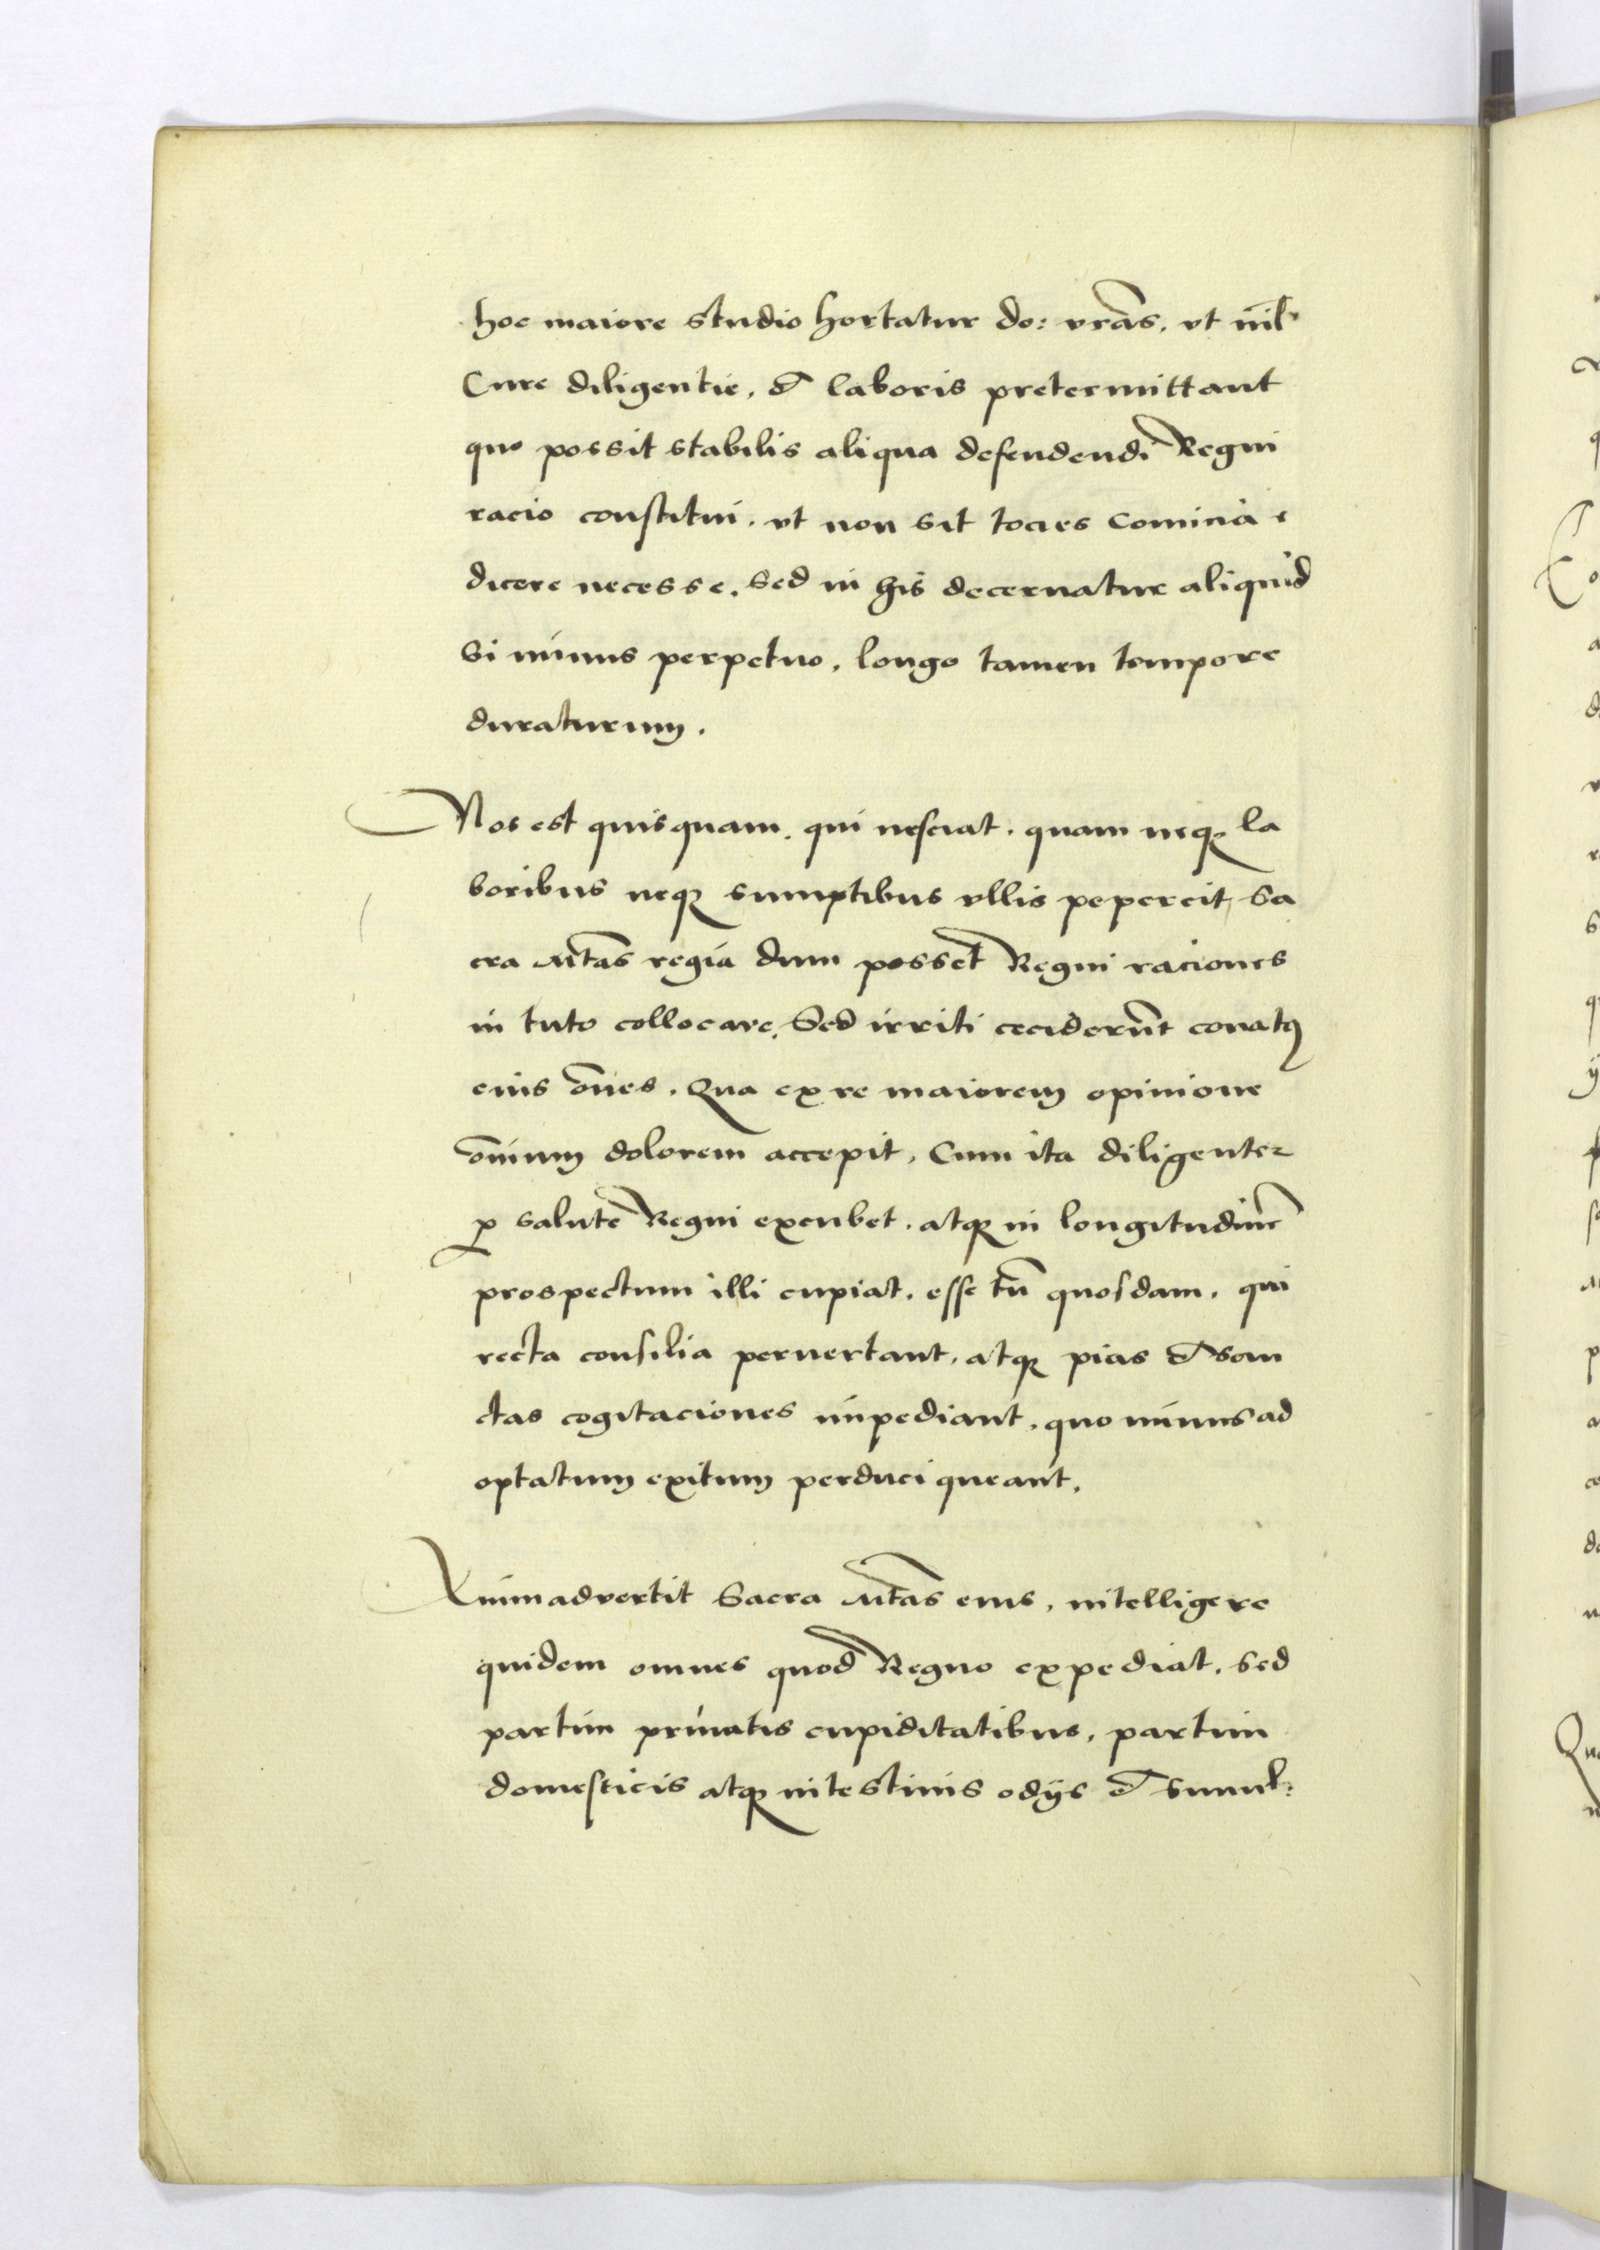 hoc maiore studio hortatur do: vrās. vt nil
Cure diligentie. et laboris pretermittant
quo possit stabilis aliqua defendendi Regni
racio constitui. vt non sit tocies comicia i
dicere necesse. Sed in his decernatur aliquid
Si minus perpetuo. longo tamen tempore
duraturum.
Nos est quisquam. qui nesciat. quam neqꝫ la
boribus neqꝫ sumptibus vllis pepercit Sa
cra Mtas regia dum posset Regni raciones
in tuto collocare. Sed irriti ceciderūt conatꝯ
eius ōnes. Qua ex re maiorem opinione
ōnium dolorem accepit. Cum ita diligenter
ꝓ salutē Regni excubet. atqꝫ in longitudinē
prospectum illi cupiat. esse tn̄ quosdam. qui
recta consilia peruertant. atqꝫ pias et san
ctas cogitaciones impediant. quo minus ad
optatum exitum perduci queant.
Animadvertit Sacra Mtas eius. intelligere
quidem omnes quod Regno expediat. Sed
partim priuatis cupiditatibus. partim
domesticis atqꝫ intestinis odijs et simul: